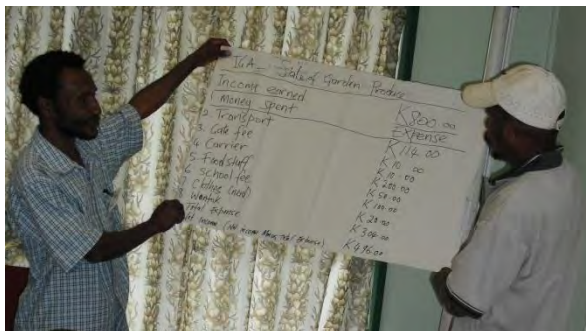 IGA - Sale of Garden Produce
Income earned K800.00
Money spent Expense
2. Transport K114.00
3. Gate fee K10.00
4. Carrier K10.00
5. Food staff K200.00
6. School fee K50.00
Clothes K100.00
Wantok K20.00
Total Expense K304.00
K496.00